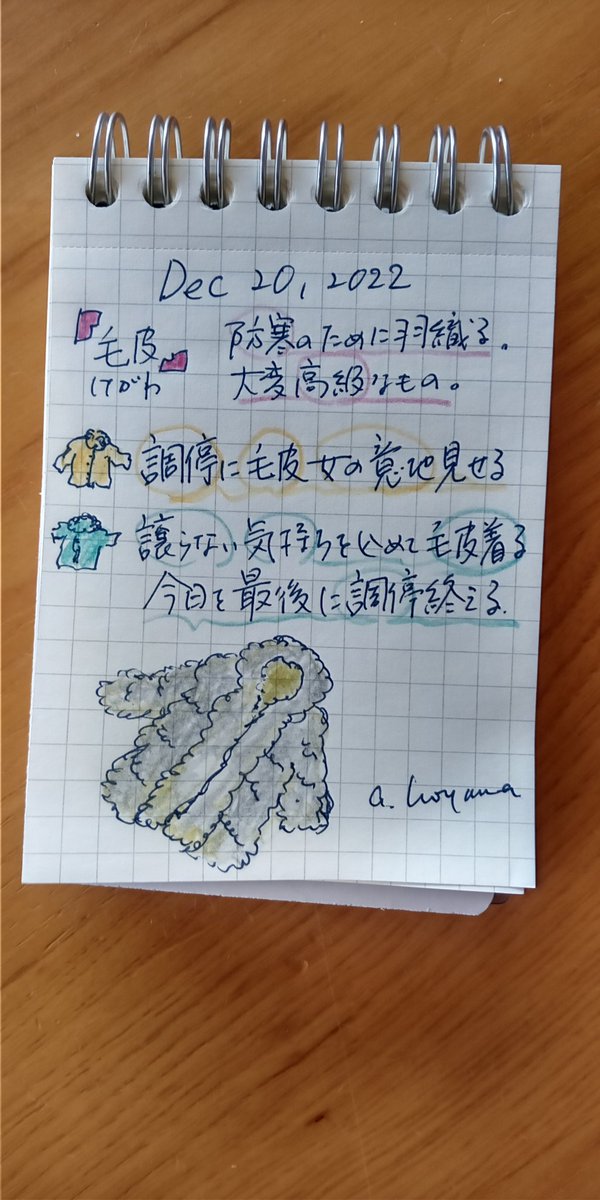 Dec 20, 2022
『毛皮』
けがわ
防寒のために羽織る。
大変高級なもの。
調停に毛皮女の意地見せる
譲らない気持ちを込めて毛皮着る
今日を最後に調停終える.